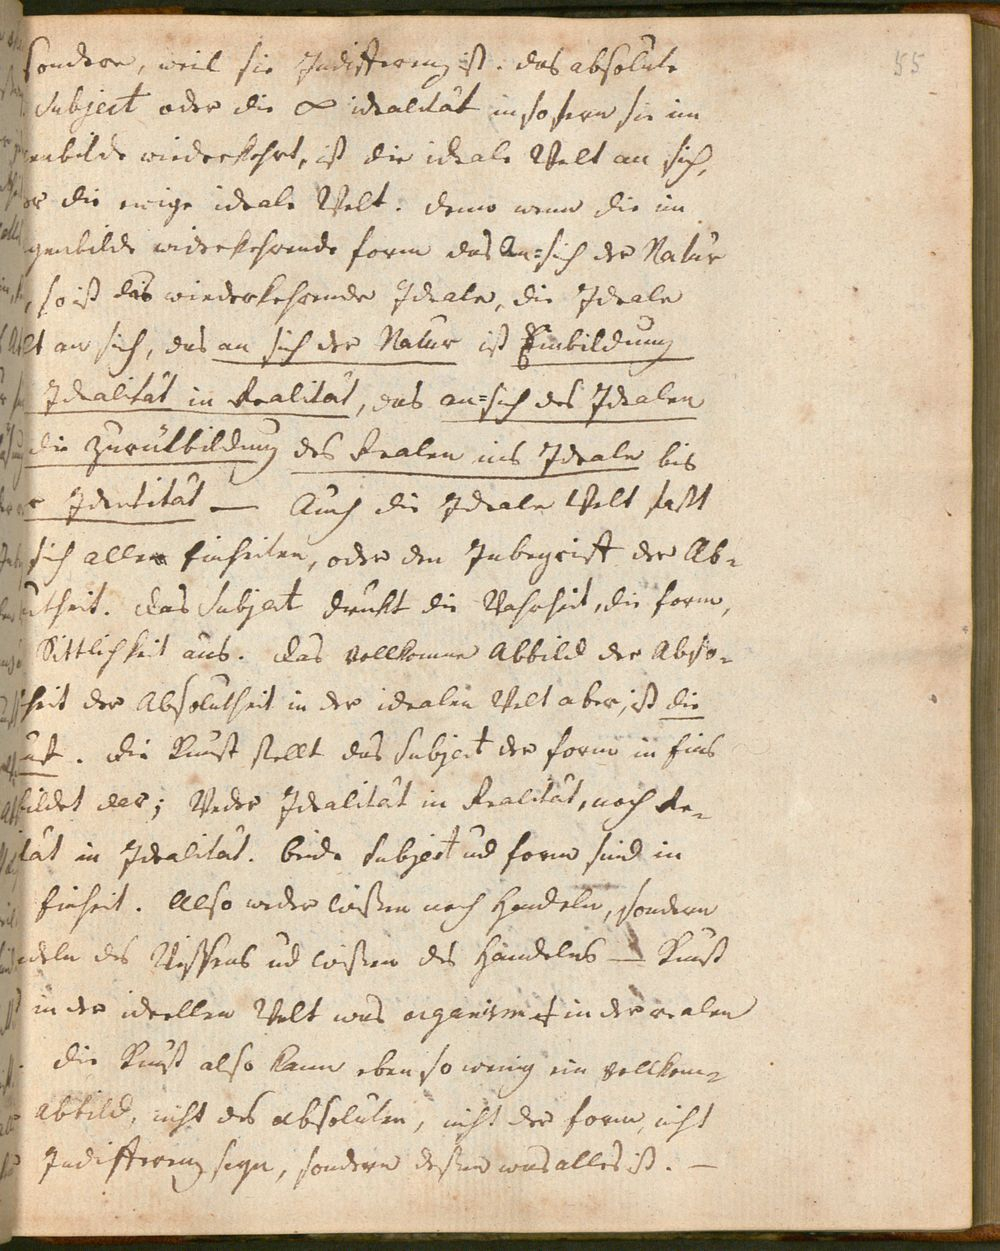 55
sondern, weil sie Indifferenz ist. das absolute
Subject oder die ∞ idealität insofern sie im
genbilde wiederkehrt, ist die ideale Welt an sich,
die ewige ideale Welt. denn wenn die im
genbilde widerkehrende form das An=sich der Natur
, so ist das wiederkehrende Ideale, die Ideale
lt an sich, das an sich der Natur ist Einbildung
Idealität in Realität, das an=sich des Idealen
die Zurükbildung des Realen ins Ideale bis
r Identität — Auch die Ideale Welt faßt
sich allen Einheiten, oder den Inbegriff der Ab-
utheit. das Subject drukt die Wahrheit, die form,
Sittlichkeit aus. das vollkomne Abbild der Abso-
heit der Absolutheit in der idealen Welt aber, ist die
unst. die Kunst stellt das Subject der form in Eins
bildet dar; Weder Idealität in Realität, noch Re-
tät in Idealität. beide Subject und form sind in
Einheit. Also weder wißen noch Handeln, sondern
ndeln des Wissens ud wißen des Handelns — Kunst
in der ideellen Welt was organism in der realen
die Kunst also kann eben so wenig ein vollkom-
Abbild, nicht des absoluten, nicht der form, nicht
Indifferenz seyn, sondern deßen was alles ist. —